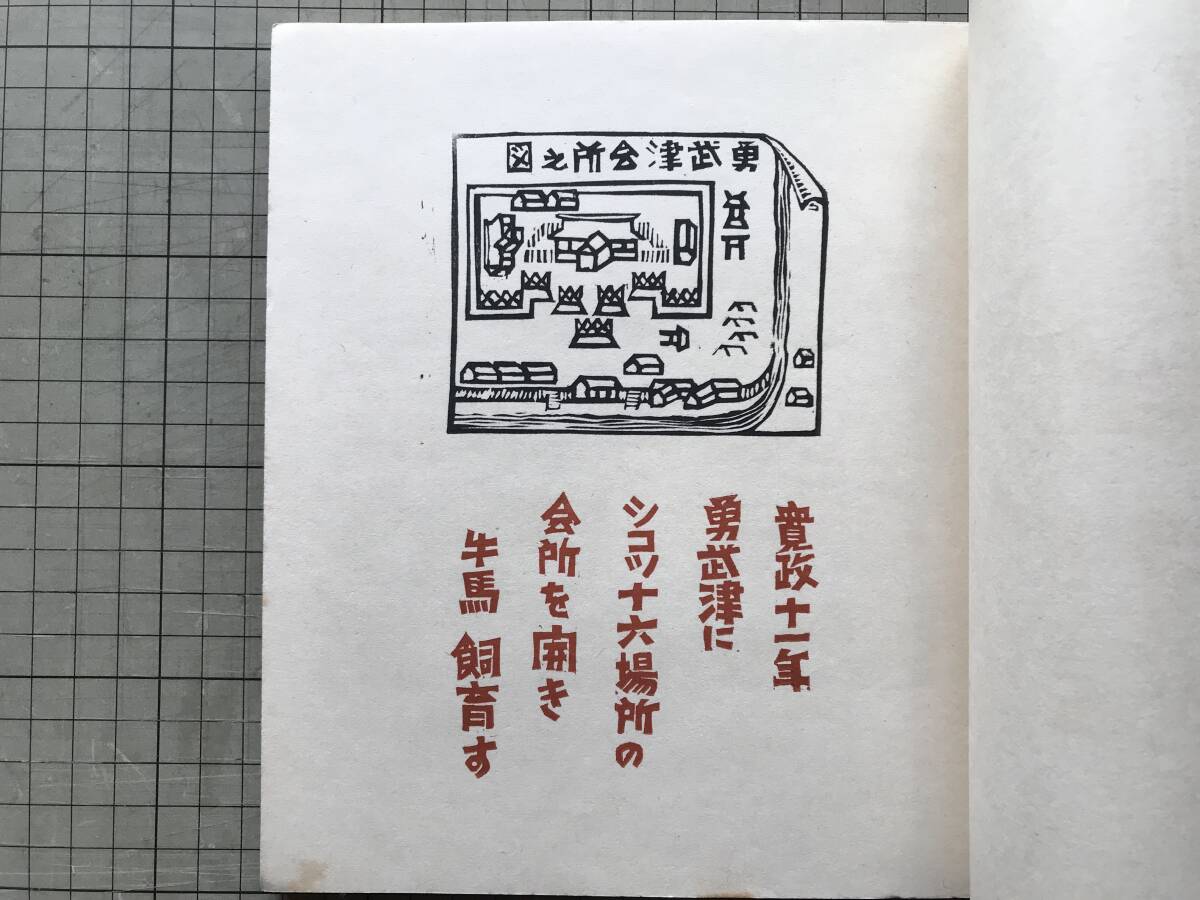 勇武津会所之図
寛政十一年
勇武津に
シコツ十六場所の
会所を開き
牛馬 飼育す